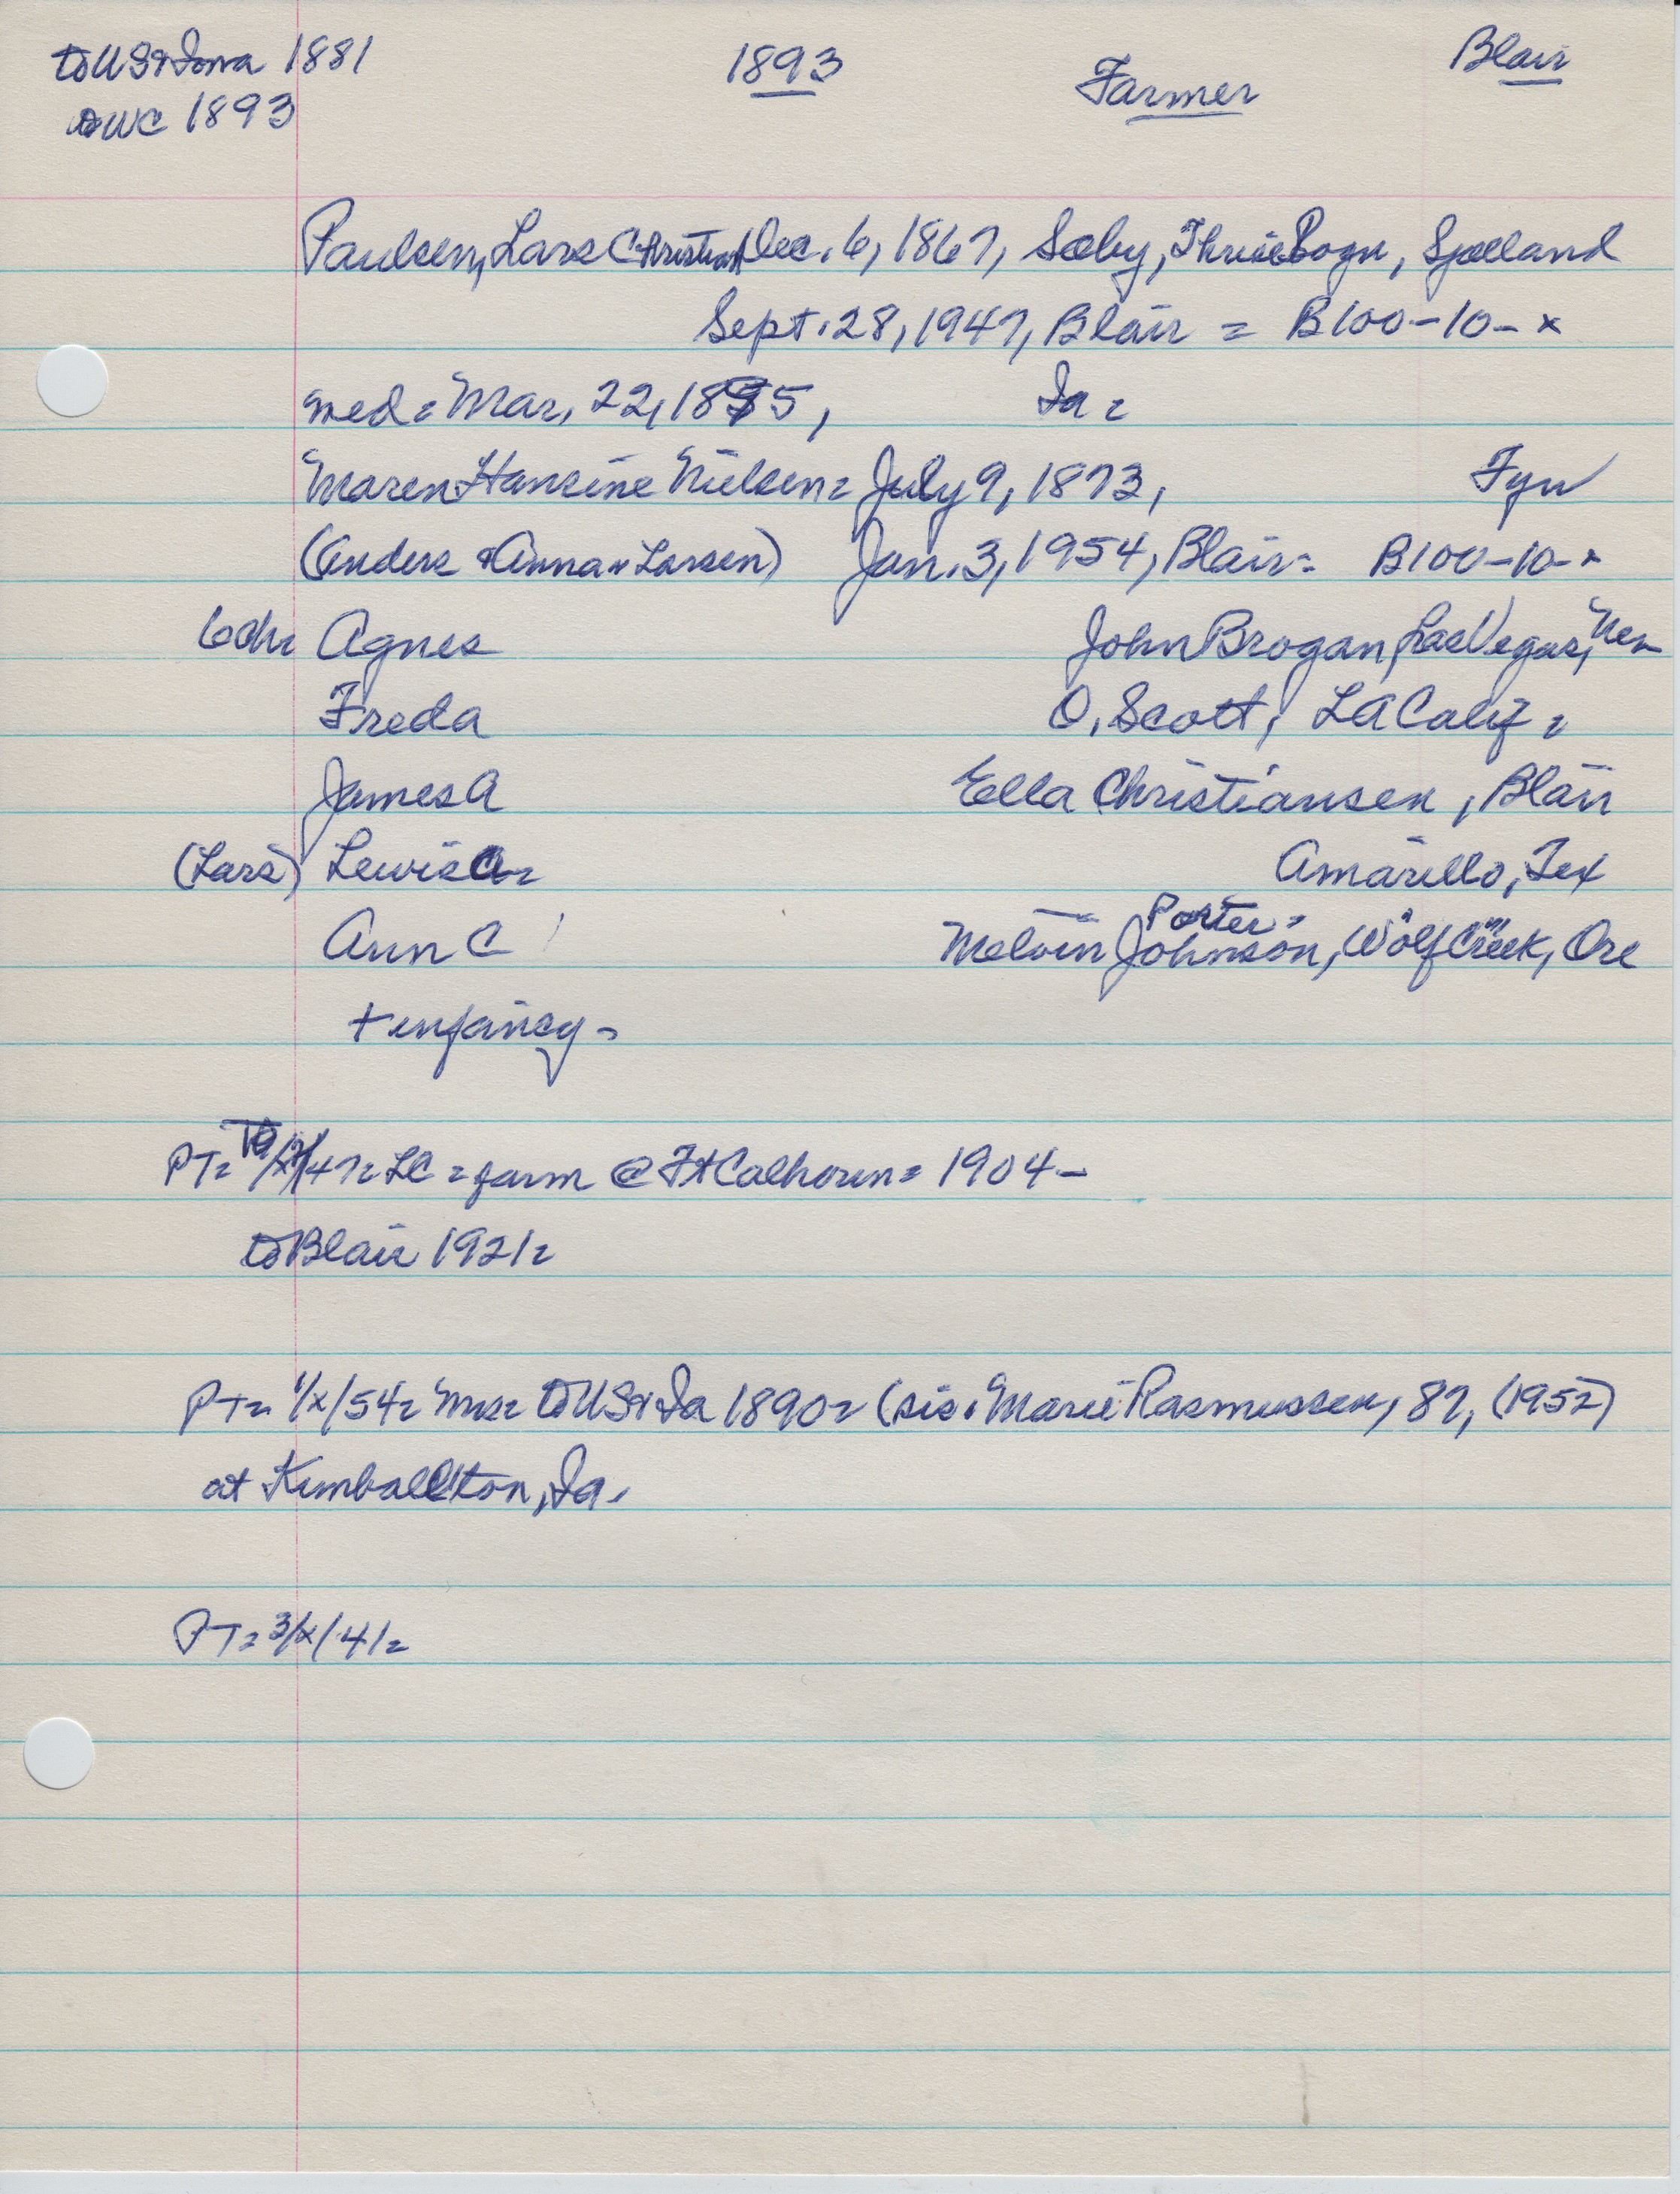 to US & Iowa 1881 1893 Farmer Blair
to WC 1893
Paulsen, Lars Christian Dec. 6, 1867, Sæby, Sjælland
Sept. 28, 1947, Blair = B100-10-x
med = Mar. 22, 1895, Ia =
Maren Hansine Nielsen = July 9, 1873, Fyn
(Anders & Anna Larsen) Jan. 3, 1954, Blair = B100-10-x
6ch = Agnes John Brogan, Las Vegas, Nev
Freda O. Scott, LA Calif =
James A Ella Christiansen, Blair
(Lars) Lewis Amarillo, Tex
Porter =
Ann C Melvin Johnson, Wolf Creek, Ore
+ infancy =
PT = /47 = LC = farm @ Ft Calhoun = 1904 -
to Blair 1921 =
PT = 1/x/54 = Mrs = to US & Ia 1890 = (sis. Marie Rasmussen, 87, (1952)
at Kimballton, Ia.
PT = 3/x/41 =